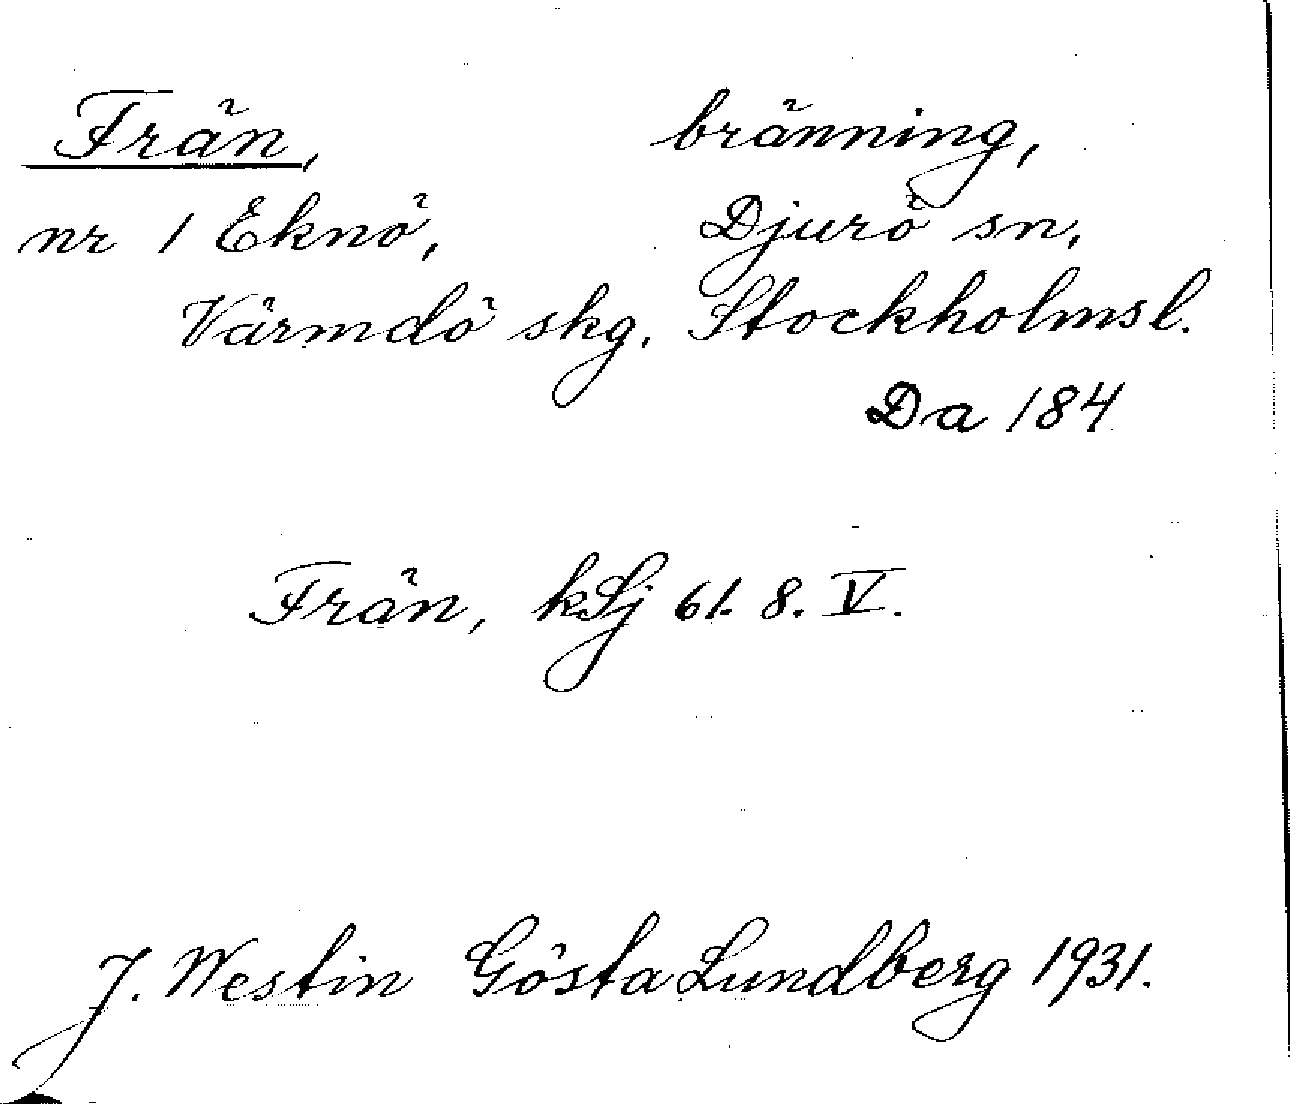 Frän, bränning,
nr 1 Eknö, Djurö sn,
Värmdö skg. Stockholmsl.
Da 184
Frän, kSj 61. 8. V.
J. Westin Gösta Lundberg 1931.